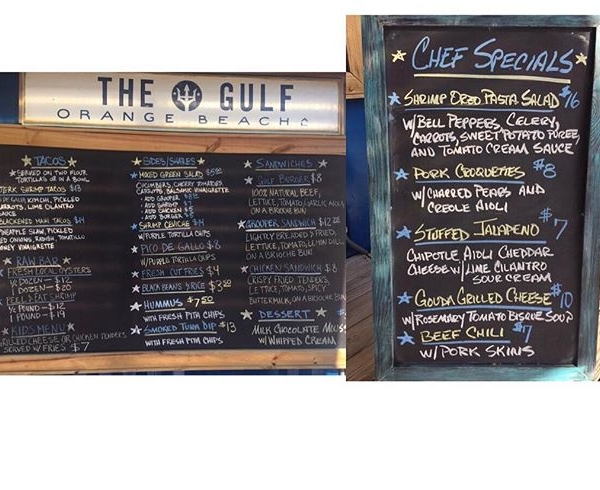 THE GULF
ORANGE BEACH
TACOS
SERVED ON TWO FLOUR
TORTILLAS OR IN A BOWL
JERK SHRIMP TACOS $13
KIMCHI, PICKLED
CARROTS, LIME CILANTRO
SAUCE
BLACKENED MAHI TACOS $14
PINEAPPLE SLAW, PICKLED
RED ONIONS, RADISH, TOMATILLO
HONEY VINAIGRETTE
RAW BAR
FRESH LOCAL OYSTERS
1/2 DOZEN - $12
1 DOZEN - $20
PEEL & EAT SHRIMP
1/2 POUND - $12
1 POUND - $19
KIDS MENU
GRILLED CHEESE OR CHICKEN TENDERS
SERVED W/ FRIES $7
SIDES/SHARES
MIXED GREEN SALAD
CUCUMBERS, CHERRY TOMATOES,
CARROTS, BALSAMIC VINAIGRETTE
- ADD GROUPER
- ADD SHRIMP
- ADD CHICKEN
- ADD BURGER
SHRIMP CEVICHE
W/PURPLE TORTILLA CHIPS
PICO DE GALLO $8
W/PURPLE TORTILLA CHIPS
FRESH CUT FRIES $4
BLACK BEANS & RICE $3.50
HUMMUS $7.50
WITH FRESH PITA CHIPS
SMOKED TUNA DIP $13
WITH FRESH PITA CHIPS
SANDWICHES
GULF BURGER $8
100% NATURAL BEEF,
LETTUCE, TOMATO, GARLIC AIOLI
ON A BRIOCHE BUN
GROUPER SANDWICH
LIGHTLY BREADED & FRIED,
LETTUCE, TOMATO, LEMON DILL
ON A BRIOCHE BUN
CHICKEN SANDWICH $8
CRISPY FRIED TENDERS,
LETTUCE, TOMATO, SPICY
BUTTERMILK, ON A BRIOCHE BUN
DESSERT
MILK CHOCOLATE MOUSSE
W/ WHIPPED CREAM
CHEF SPECIALS
SHRIMP ORZO PASTA SALAD $16
W/BELL PEPPERS, CELERY,
CARROTS, SWEET POTATO PUREE,
AND TOMATO CREAM SAUCE
PORK CROQUETTES $8
W/CHARRED PEARS AND
CREOLE AIOLI
STUFFED JALAPENO $7
CHIPOTLE AIOLI CHEDDAR
CHEESE W/ LIME CILANTRO
SOUR CREAM
GOUDA GRILLED CHEESE $10
W/ROSEMARY TOMATO BISQUE SOUP
BEEF CHILI $7
W/ PORK SKINS